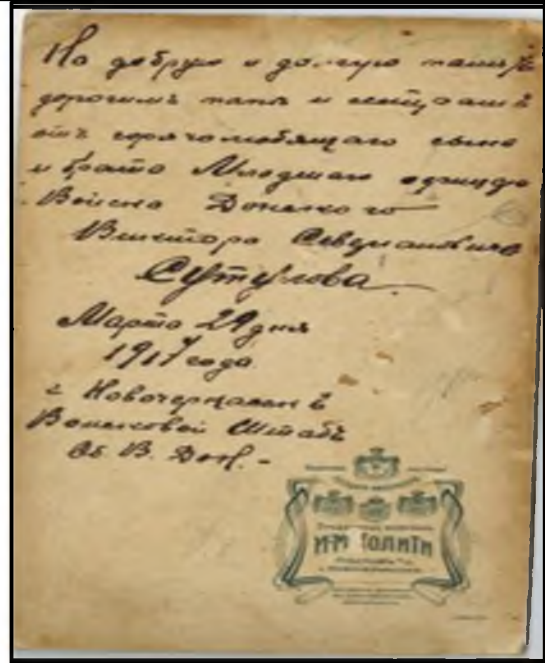 На добрую и долгую память
дорогимъ папѣ и сестрамъ
отъ горячо любящаго сына
и брата Младшаго
Войска Донского
Виктора
Сутулова.
Марта 29 дня
1917 года.
г. Новочеркасскъ
Войсковой Штабъ
Об. В. Дон. -